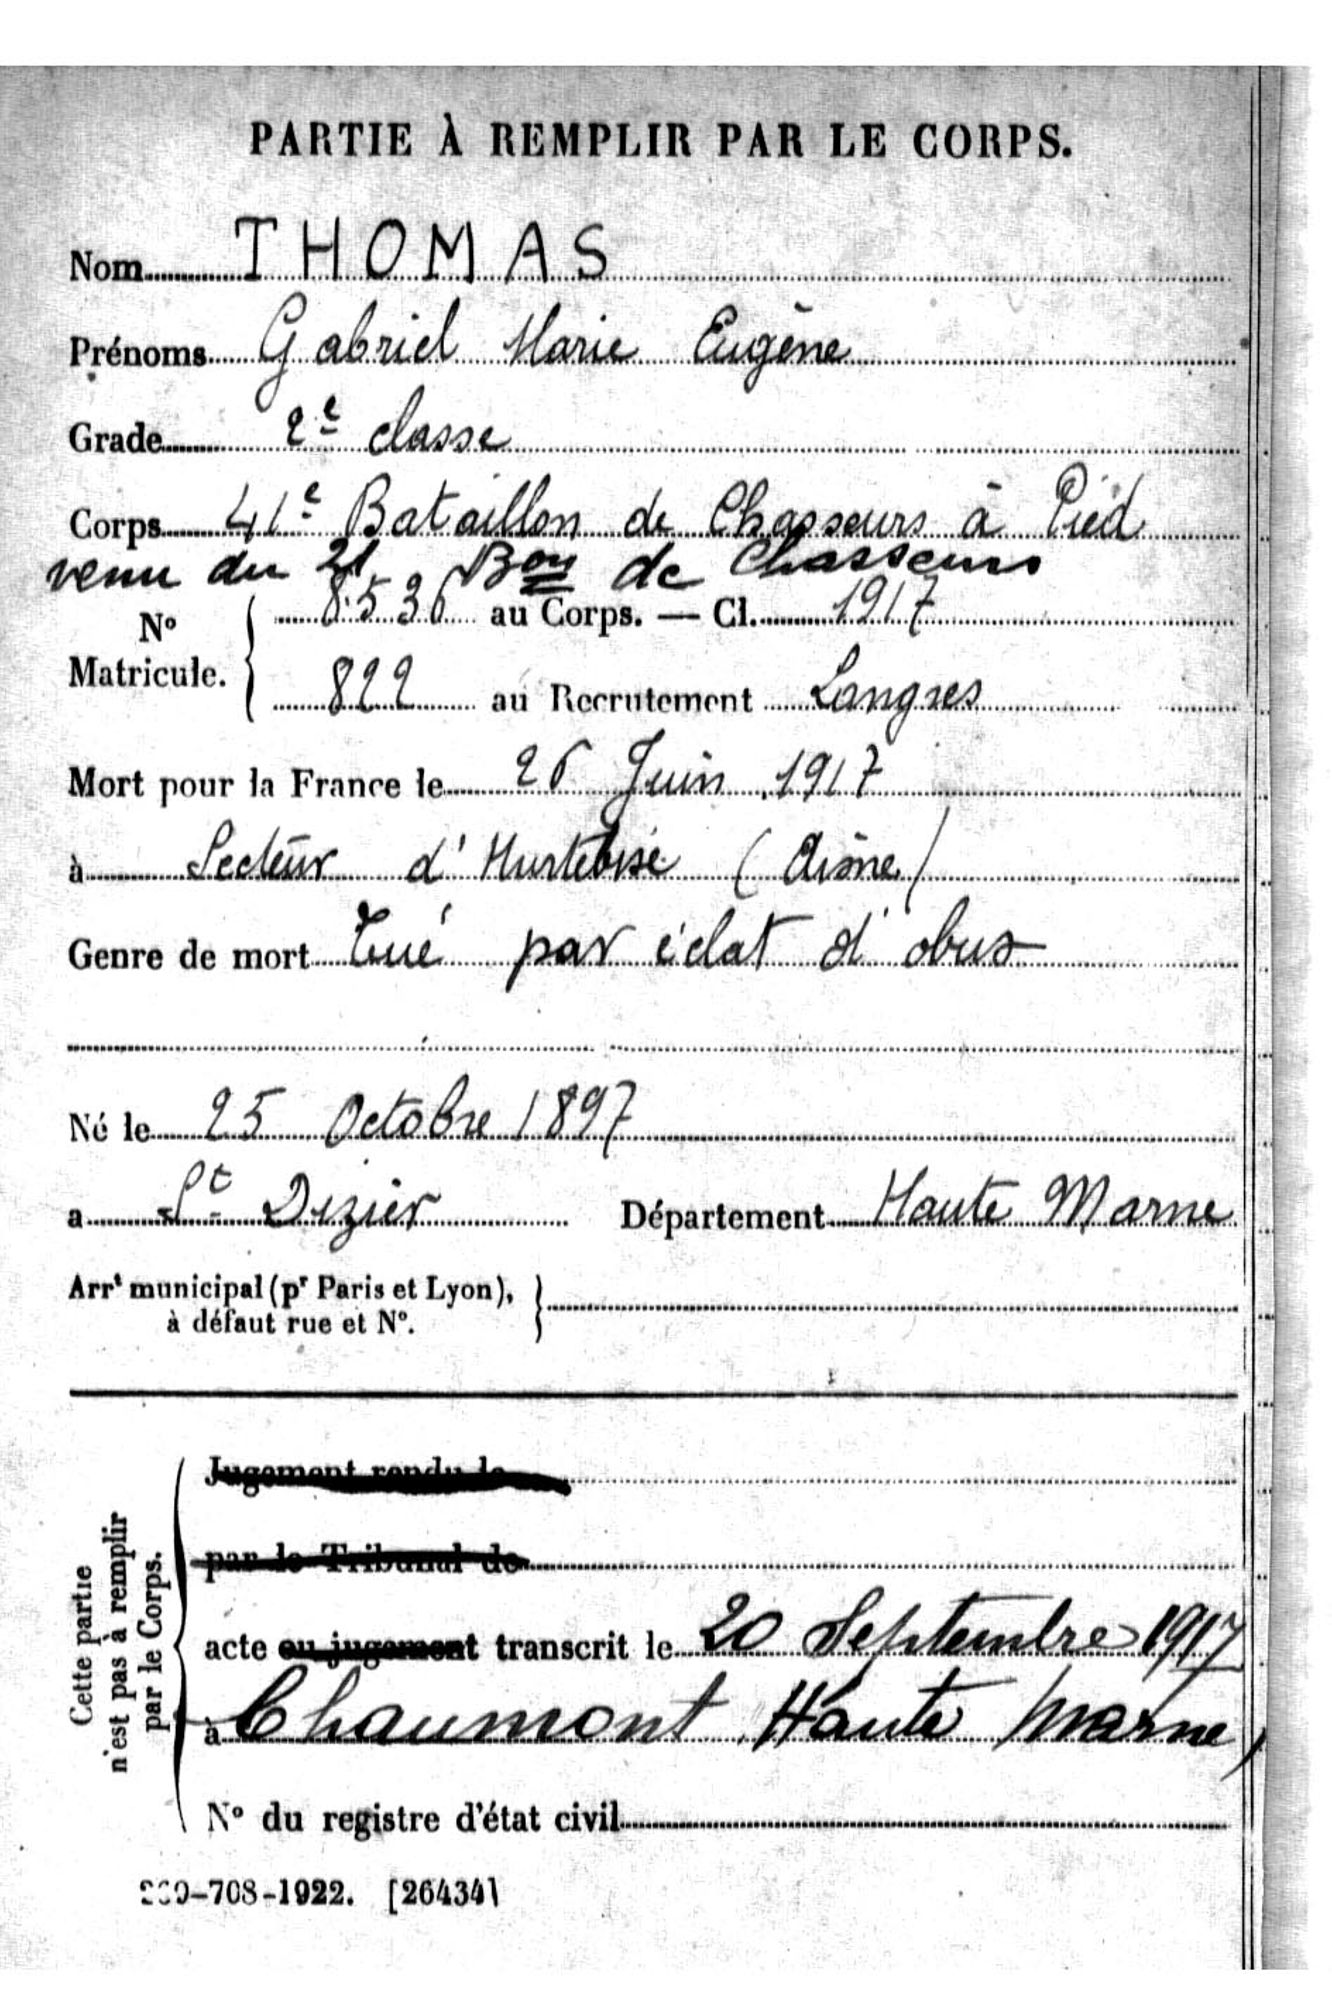 PARTIE À REMPLIR PAR LE CORPS.
Nom THOMAS
Prénoms Gabriel Marie Eugène
Grade 2e classe
Corps 41e Bataillon de Chasseurs à Pied
venu du 21 Bon de Chasseurs
No Matricule. { 8536 au Corps. — Cl. 1917
822 au Recrutement Langres
Mort pour la France le 26 Juin 1917
à Secteur d'Hurtebise (Aisne)
Genre de mort Tué par éclat d'obus
Né le 25 Octobre 1897
a St Dizier Département Haute Marne
Arrt municipal (pr Paris et Lyon), }
à défaut rue et No.
Cette partie n'est pas à remplir par le Corps.
Jugement rendu le
par le Tribunal de
acte ou jugement transcrit le 20 Septembre 1917
à Chaumont Haute Marne)
No du registre d'état civil
-708-1922. [26434]